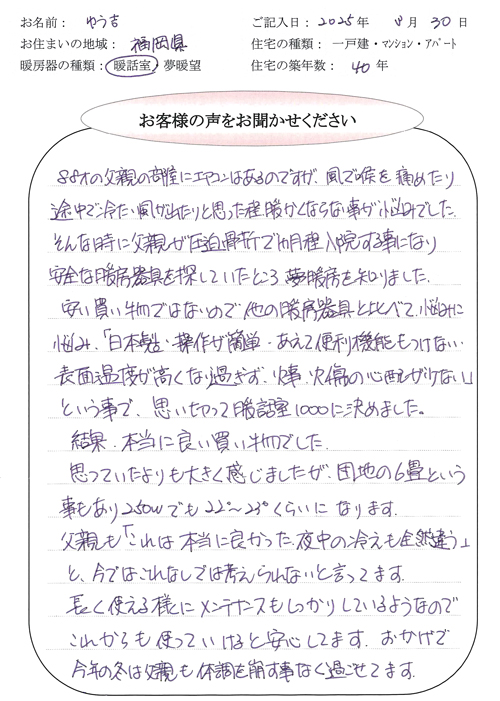 お名前： ゆう吉 ご記入日： 2025年 4月 30日
お住まいの地域： 福岡県 住宅の種類： 一戸建・マンション・アパート
暖房器の種類： 暖話室・夢暖望 住宅の築年数： 40年
お客様の声をお聞かせください
88才の父親の部屋にエアコンはあるのですが、風で喉を痛めたり
途中で冷たい風が出たりと思った程暖かくならない事が悩みでした。
そんな時に父親が圧迫骨折で 月程入院する事になり
安全な暖房器具を探していたところ夢暖房を知りました。
安い買い物ではないので他の暖房器具と比べて、悩みに
悩み、「日本製・操作が簡単・あえて便利機能をつけない・
表面温度が高くなり過ぎず、火事、火傷の心配がない」
という事で、思いきって暖話室1000に決めました。
結果、本当に良い買い物でした。
思っていたよりも大きく感じましたが、団地の6畳という
事もあり250Wでも22°〜23°くらいになります。
父親も「これは本当に良かった、夜中の冷えも全然違う」
と、今ではこれなしでは考えられないと言ってます。
長く使える様にメンテナンスもしっかりしているようなので
これからも使っていけると安心してます。おかげで
今年の冬は父親も体調を崩す事なく過ごせてます。